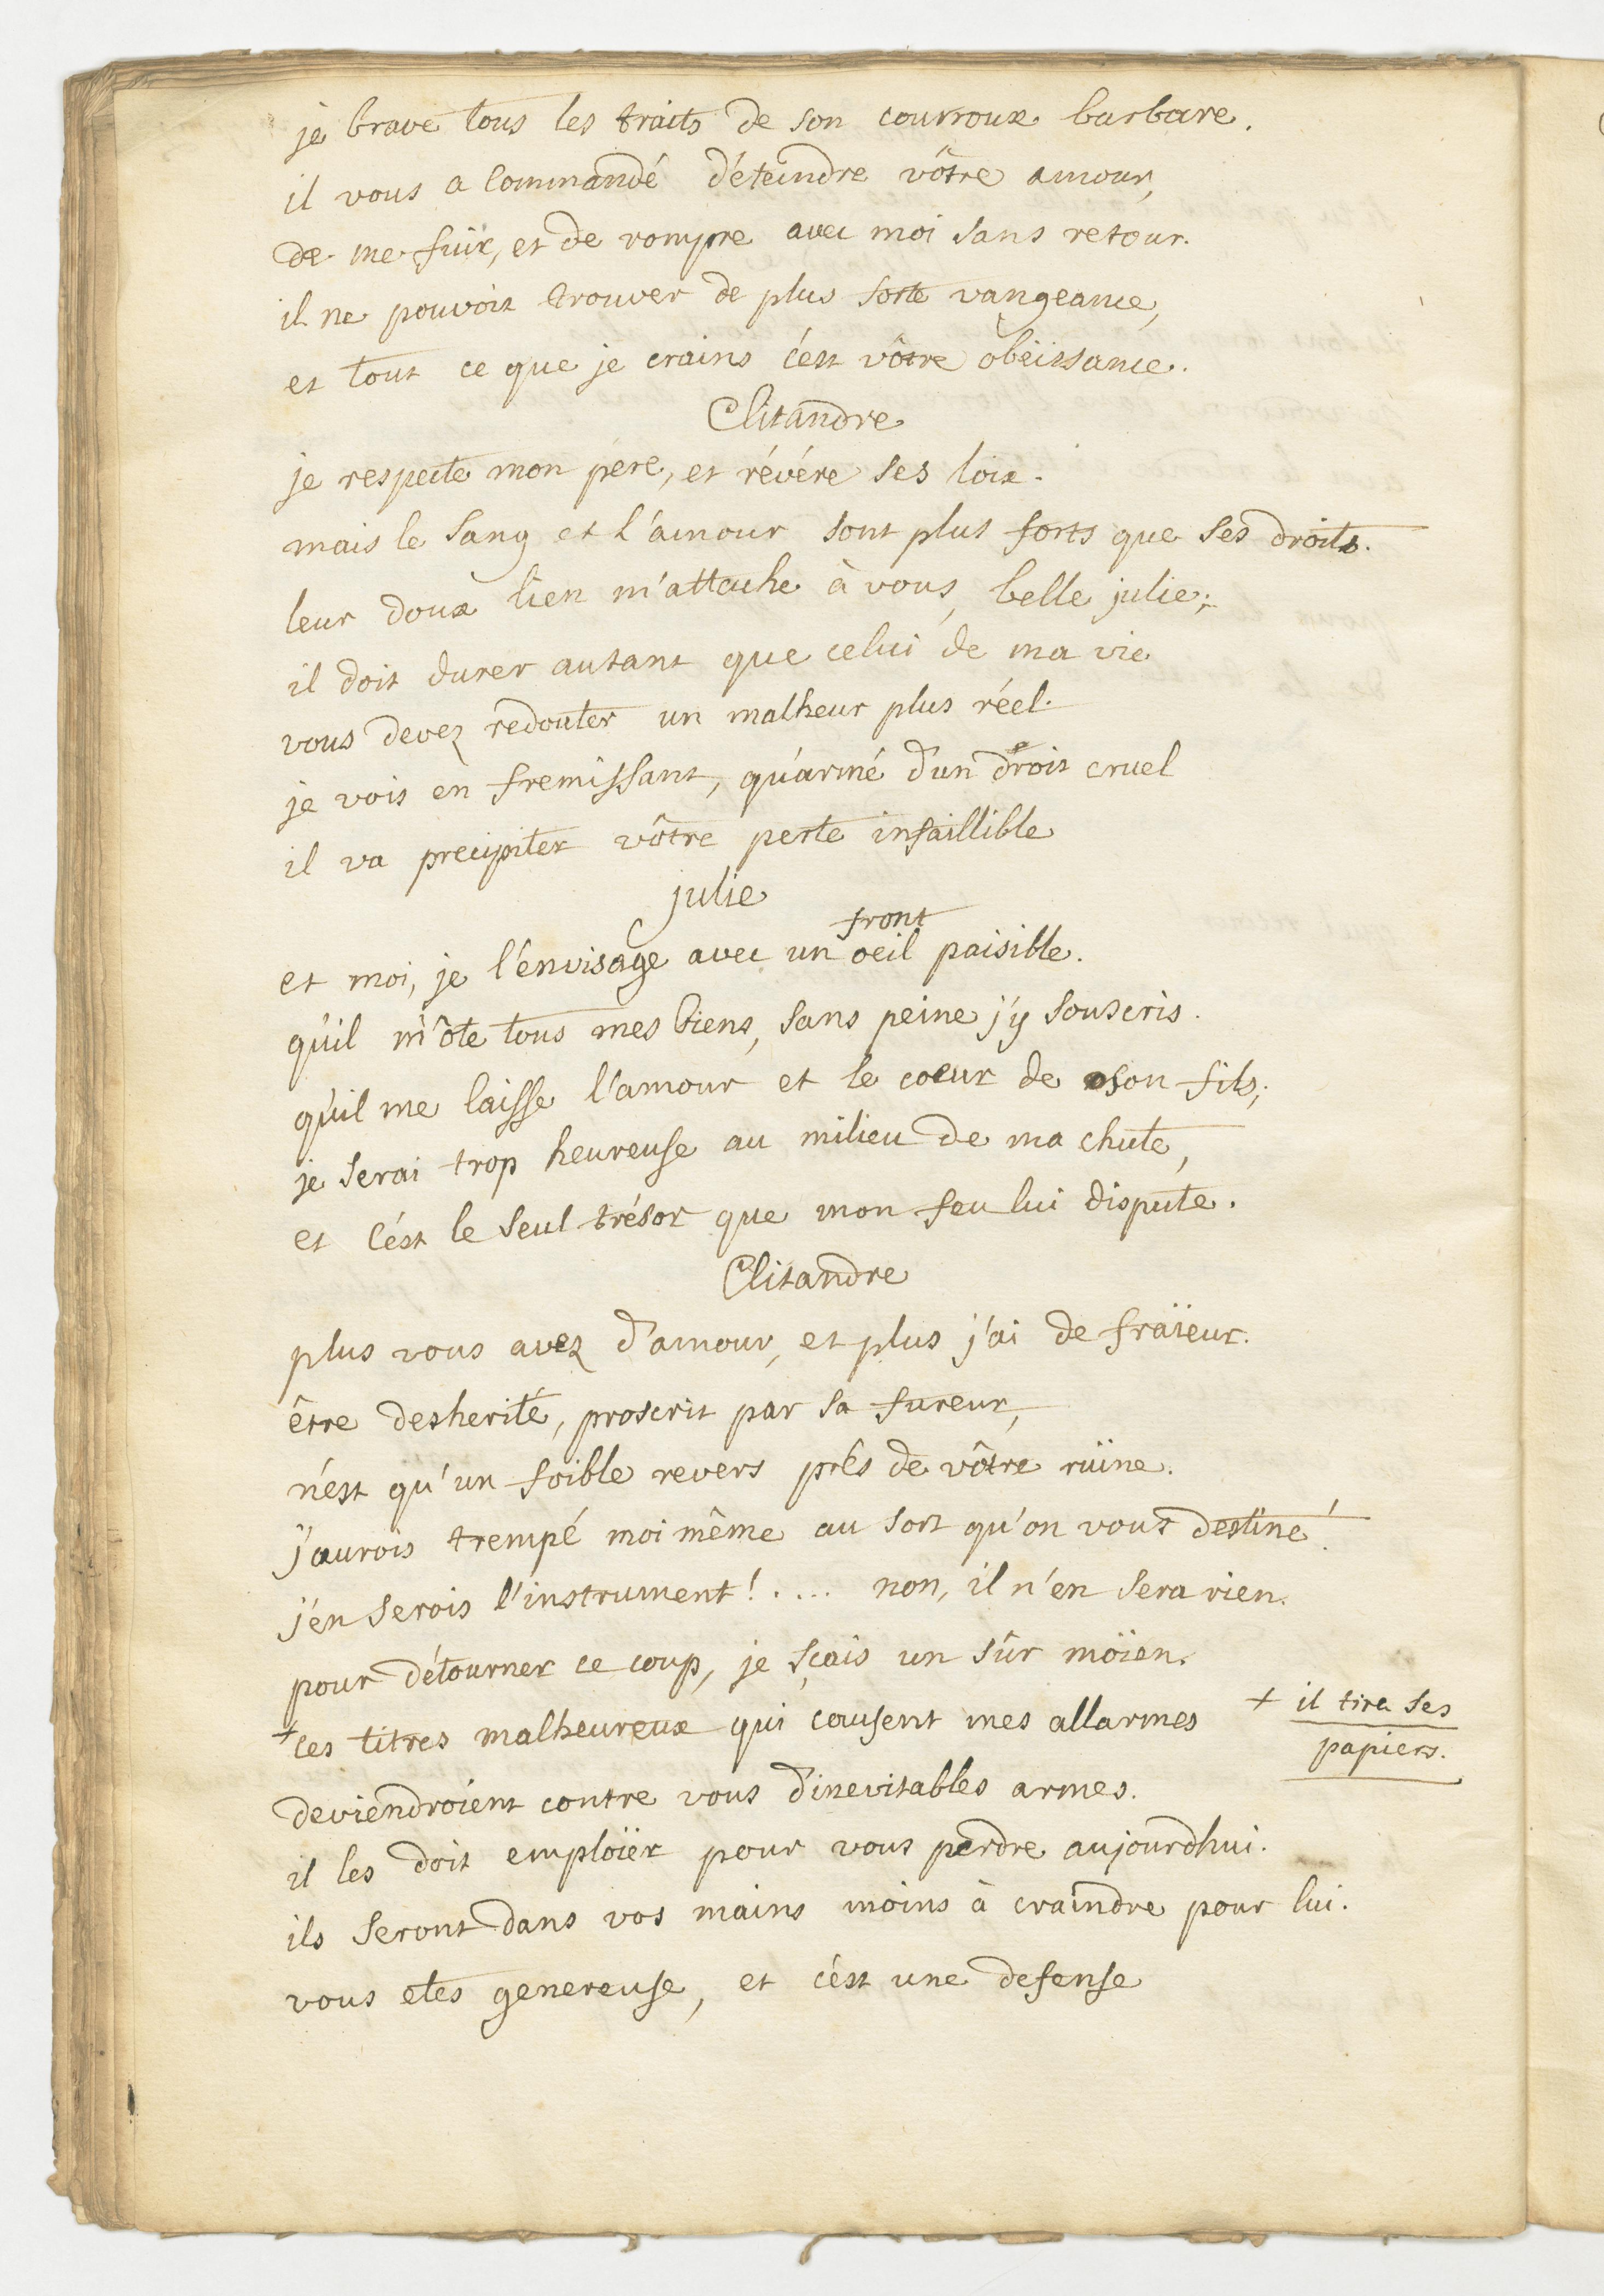 je brave tous les traits de son courroux barbare.
il vous a commandé d'éteindre vôtre amour,
de me fuir, et de rompre avec moi sans retour.
il ne pouvoit trouver de plus forte vangeance,
et tout ce que je crains c'est vôtre obëissance.
Clitandre
je respecte mon pére, et révére ses loix.
mais le sang et l'amour sont plus forts que ses droits.
leur doux lien m'attache à vous, belle julie;
il doit durer autant que celui de ma vie
vous devez redouter un malheur plus réel.
je vois en fremissant, qu'armé d'un droit cruel
il va precipiter vôtre perte infaillible
julie
front
et moi, je l'envisage avec un oeil paisible.
qu'il m'ôte tous mes biens, sans peine j'y souscris.
qu'il me laisse l'amour et le coeur de son fils;
je serai trop heureuse au milieu de ma chute,
et c'est le seul trésor que mon feu lui dispute.
Clitandre
plus vous avez d'amour, et plus j'ai de fraïeur.
être desherité, proscrit par sa fureur,
n'est qu'un foible revers prés de vôtre rüine.
j'aurois trempé moi même au sort qu'on vous destine!
j'en serois l'instrument!.... non, il n'en sera rien.
pour détourner ce coup, je sçais un sûr moïen.
+ces titres malheureux qui causent mes allarmes
+ il tire ses
papiers.
deviendroient contre vous d'inevitables armes.
il les doit emploïer pour vous perdre aujourdhui.
ils seront dans vos mains moins à craindre pour lui.
vous etes genereuse, et c'est une defense